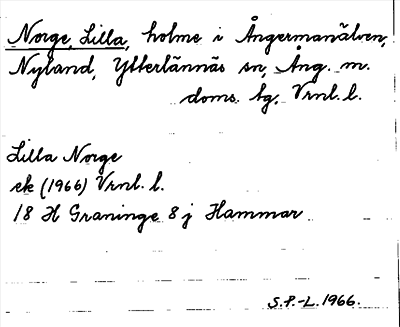 Norge, Lilla, holme i Ångermanälven,
Nyland, Ytterlännäs sn, Ång. m.
doms. tg, Vrnl. l.
Lilla Norge
ek (1966) Vrnl. l.
18 H Graninge 8 j Hammar
S.P.-L. 1966.